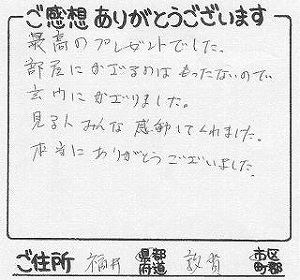 ご感想ありがとうございます
最高のプレゼントでした。
部屋にかざるのはもったないので、
玄内にかざりました。
見る人みんな感動してくれました。
本当にありがとうございました。
ご住所 福井 都道府県 敦賀 市区町郡